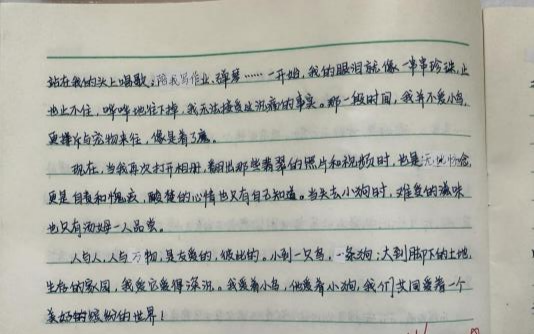 站在我的头上唱歌,陪我写作业、弹琴……一开始,我的眼泪就像一串串珍珠,止
也止不住,哗哗地往下掉,我无法接受这沉痛的事实。那一段时间,我并不爱小鸟,
更排斥与宠物来往,像是着了魔。
现在,当我再次打开相册,翻出那些翡翠的照片和视频时,也是无他怀念
更是自责和愧疚,酸楚的心情也只有自己知道。当失去小狗时,难受的滋味
也只有汤姆一人品尝。
人与人,人与万物,是友爱的,彼此的。小到一只鸟,一条狗;大到脚下的土地,
生存的家园,我爱它爱得深沉。我爱着小鸟,他爱着小狗,我们共同爱着一个
美好的缤纷的世界!